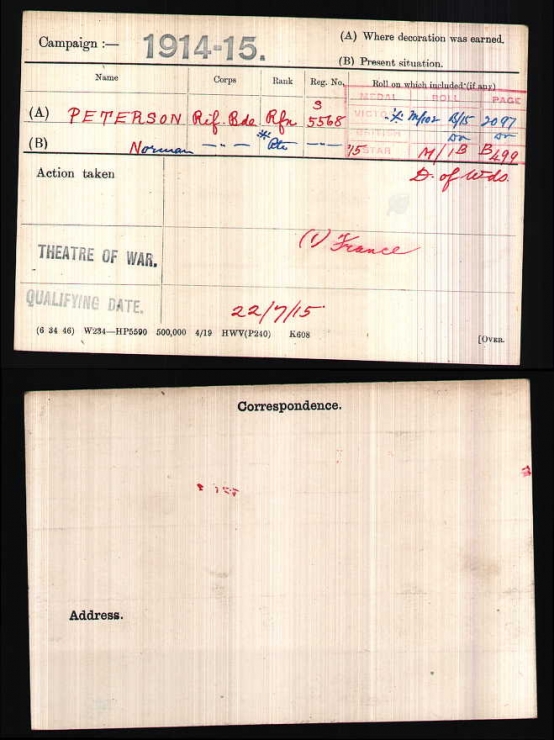 Campaign :— 1914-15. (A) Where decoration was earned.
(B) Present situation.
Name Corps Rank Reg. No. Roll on which included (if any)
MEDAL ROLL PAGE
(A) PETERSON Rif. Bde Rfn S 5568 VICTORY M/102 B/15 2097
(B) Norman —"— * Pte —"— BRITISH Do Do
15 STAR M/1B B499
Action taken D. of Wds.
THEATRE OF WAR. (1) France
QUALIFYING DATE. 22/7/15
(6 34 46) W234—HP5590 500,000 4/19 HWV(P240) K608 [OVER.
Correspondence.
Address.